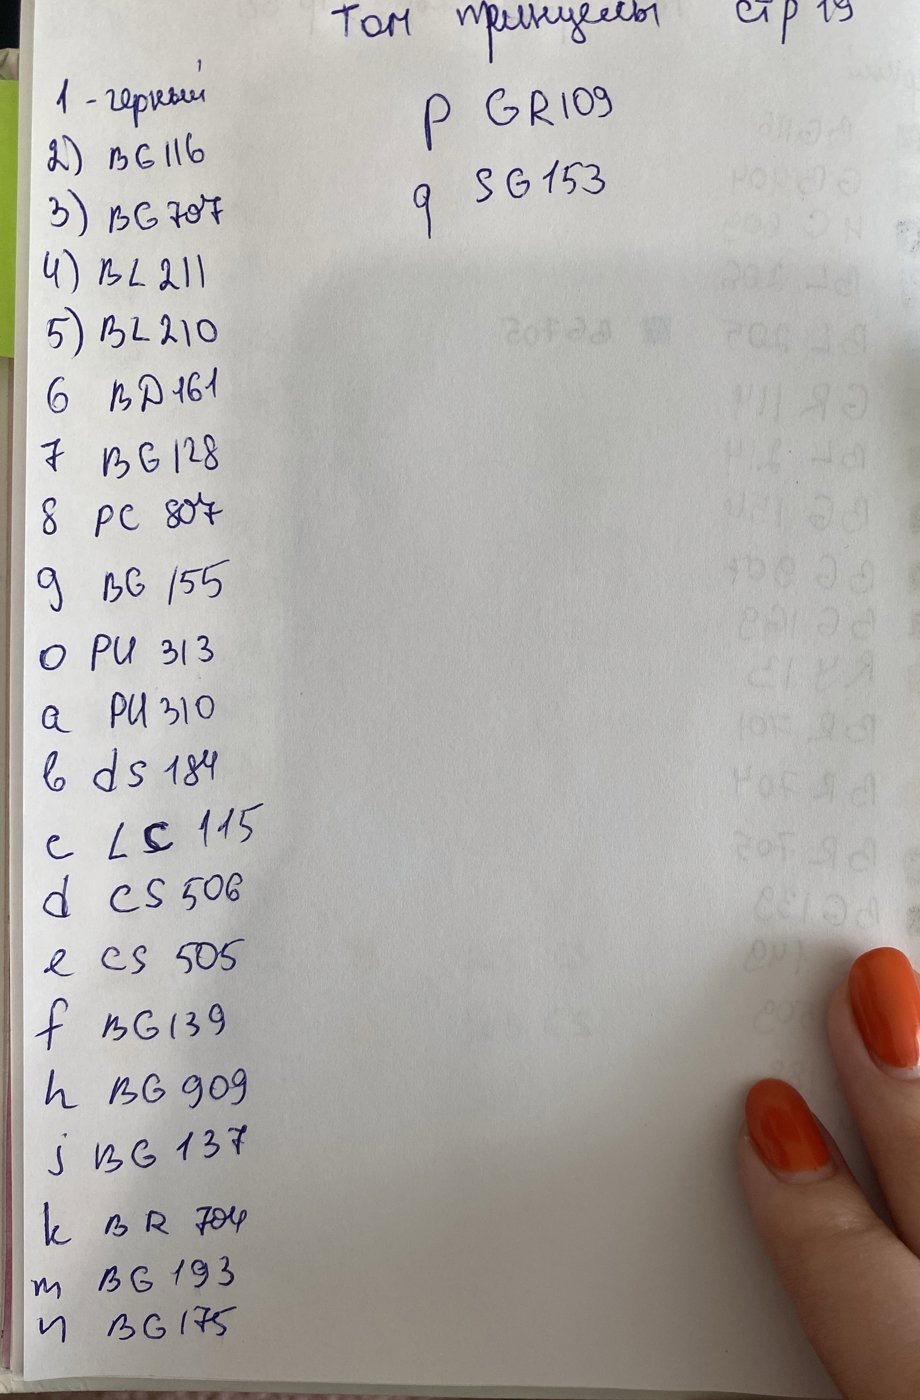 Том принцессы стр 19
1 - черный
2) BG 116
3) BG 707
4) BL 211
5) BL 210
6 BD 161
7 BG 128
8 PC 807
9 BG 155
0 PU 313
a PU 310
b ds 184
c LC 115
d CS 506
e CS 505
f BG 139
h BG 909
j BG 137
k BR 704
m BG 193
n BG 175
p GR109
q SG 153